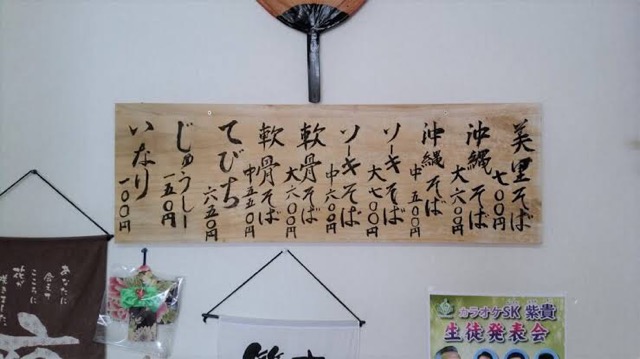 美里そば
七〇〇円
沖縄そば
大六〇〇円
沖縄そば
中五〇〇円
ソーキそば
大七〇〇円
ソーキそば
中六〇〇円
軟骨そば
大六〇〇円
軟骨そば
中五五〇円
てびち
六五〇円
じゅうしー
一五〇円
いなり
一〇〇円
あなたに
会えて
こころに
花が
咲きました
カラオケSK 紫貴
生徒発表会